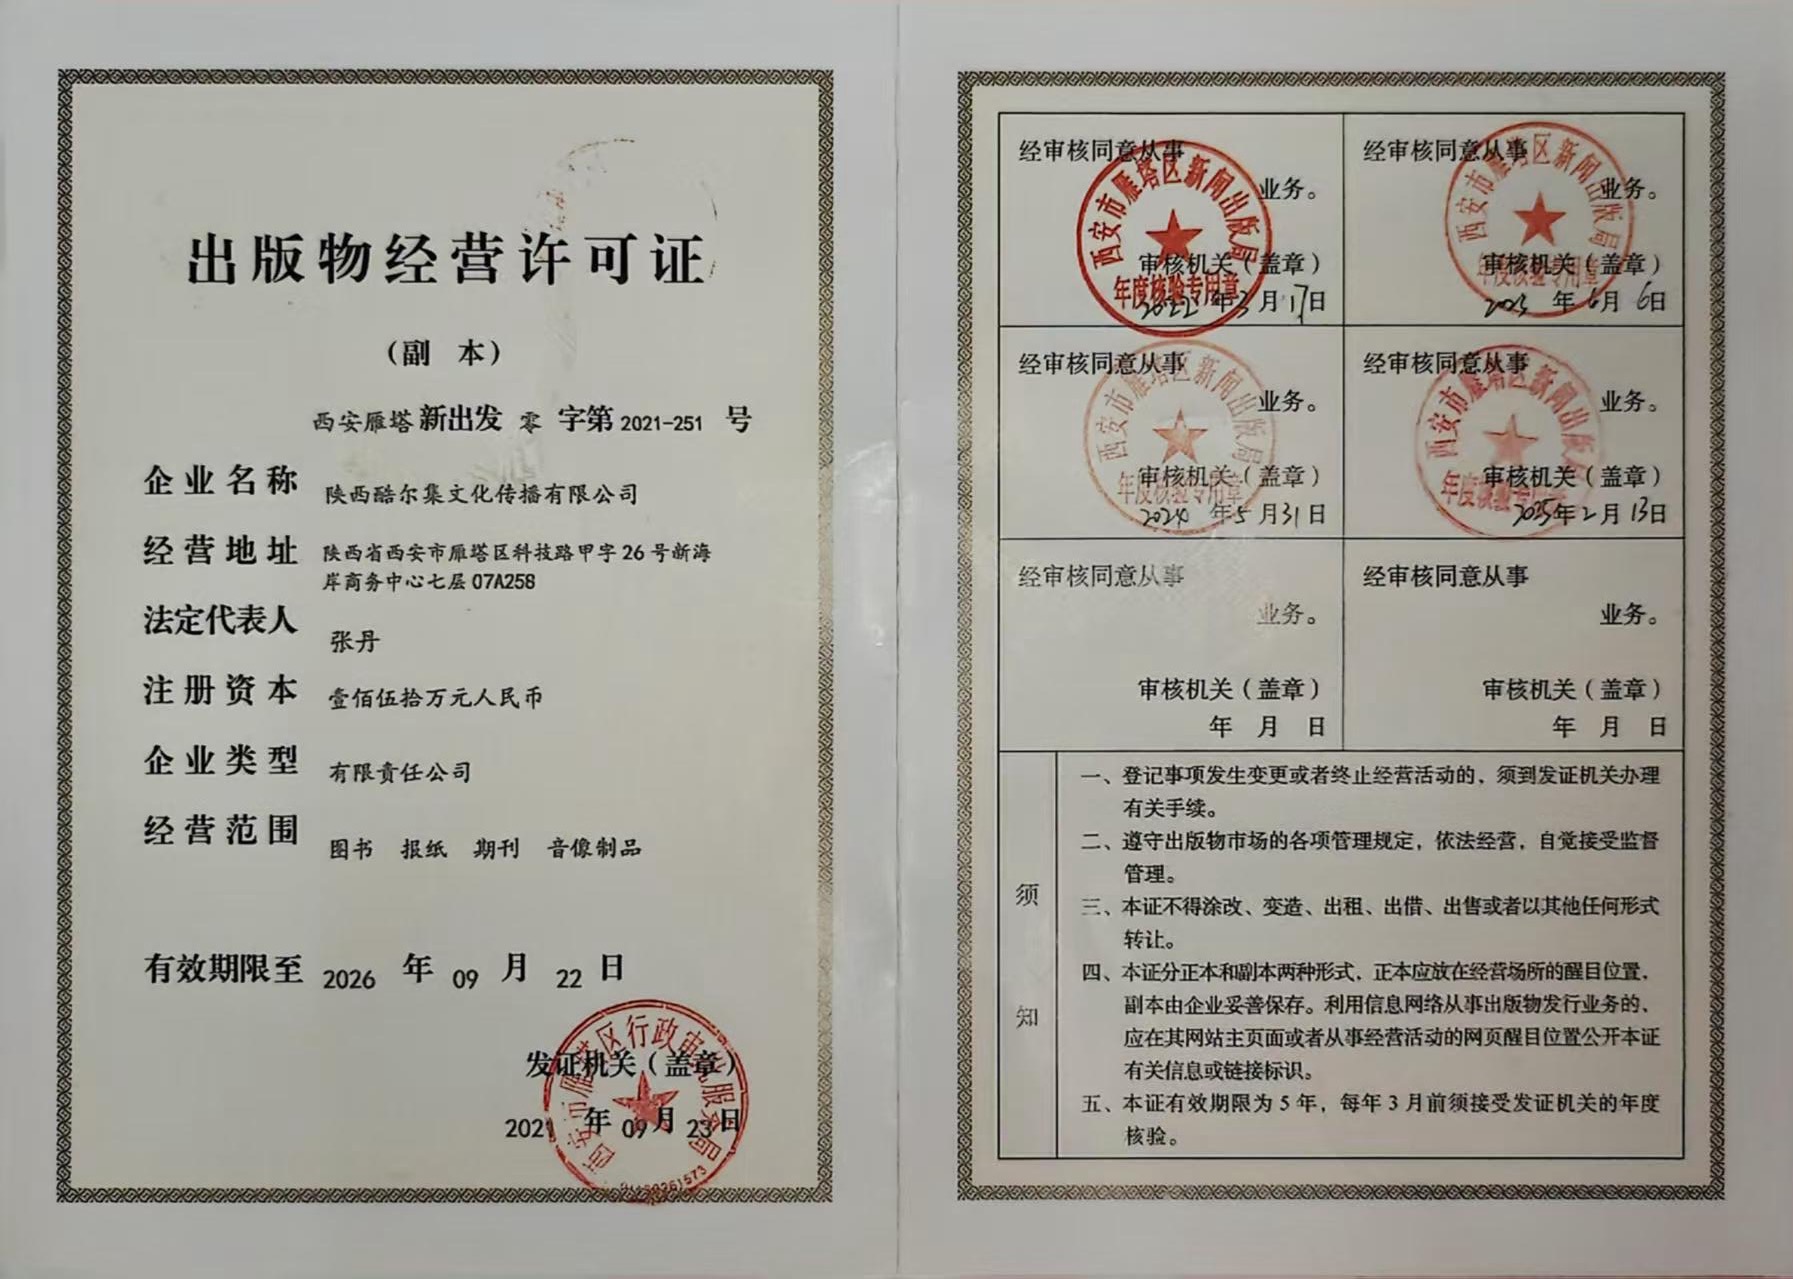 出版物经营许可证
（副 本）
西安雁塔 新出发 零 字第 2021-251 号
企业名称 陕西酷尔集文化传播有限公司
经营地址 陕西省西安市雁塔区科技路甲字26号新海
岸商务中心七层07A258
法定代表人 张丹
注册资本 壹佰伍拾万元人民币
企业类型 有限责任公司
经营范围 图书 报纸 期刊 音像制品
有效期限至 2026 年 09 月 22 日
发证机关（盖章）
2021 年 09 月 23 日
西安市雁塔区行政审批服务局
经审核同意从事
业务。
审核机关（盖章）
2022 年 3 月 17 日
西安市雁塔区新闻出版局
年度核验专用章
经审核同意从事
业务。
审核机关（盖章）
2023 年 6 月 6 日
西安市雁塔区新闻出版局
年度核验专用章
经审核同意从事
业务。
审核机关（盖章）
2024 年 5 月 31 日
西安市雁塔区新闻出版局
年度核验专用章
经审核同意从事
业务。
审核机关（盖章）
2025 年 2 月 13 日
西安市雁塔区新闻出版局
年度核验专用章
经审核同意从事
业务。
审核机关（盖章）
年 月 日
经审核同意从事
业务。
审核机关（盖章）
年 月 日
须知
一、登记事项发生变更或者终止经营活动的，须到发证机关办理
有关手续。
二、遵守出版物市场的各项管理规定，依法经营，自觉接受监督
管理。
三、本证不得涂改、变造、出租、出借、出售或者以其他任何形式
转让。
四、本证分正本和副本两种形式，正本应放在经营场所的醒目位置，
副本由企业妥善保存。利用信息网络从事出版物发行业务的，
应在其网站主页面或者从事经营活动的网页醒目位置公开本证
有关信息或链接标识。
五、本证有效期限为5年，每年3月前须接受发证机关的年度
核验。